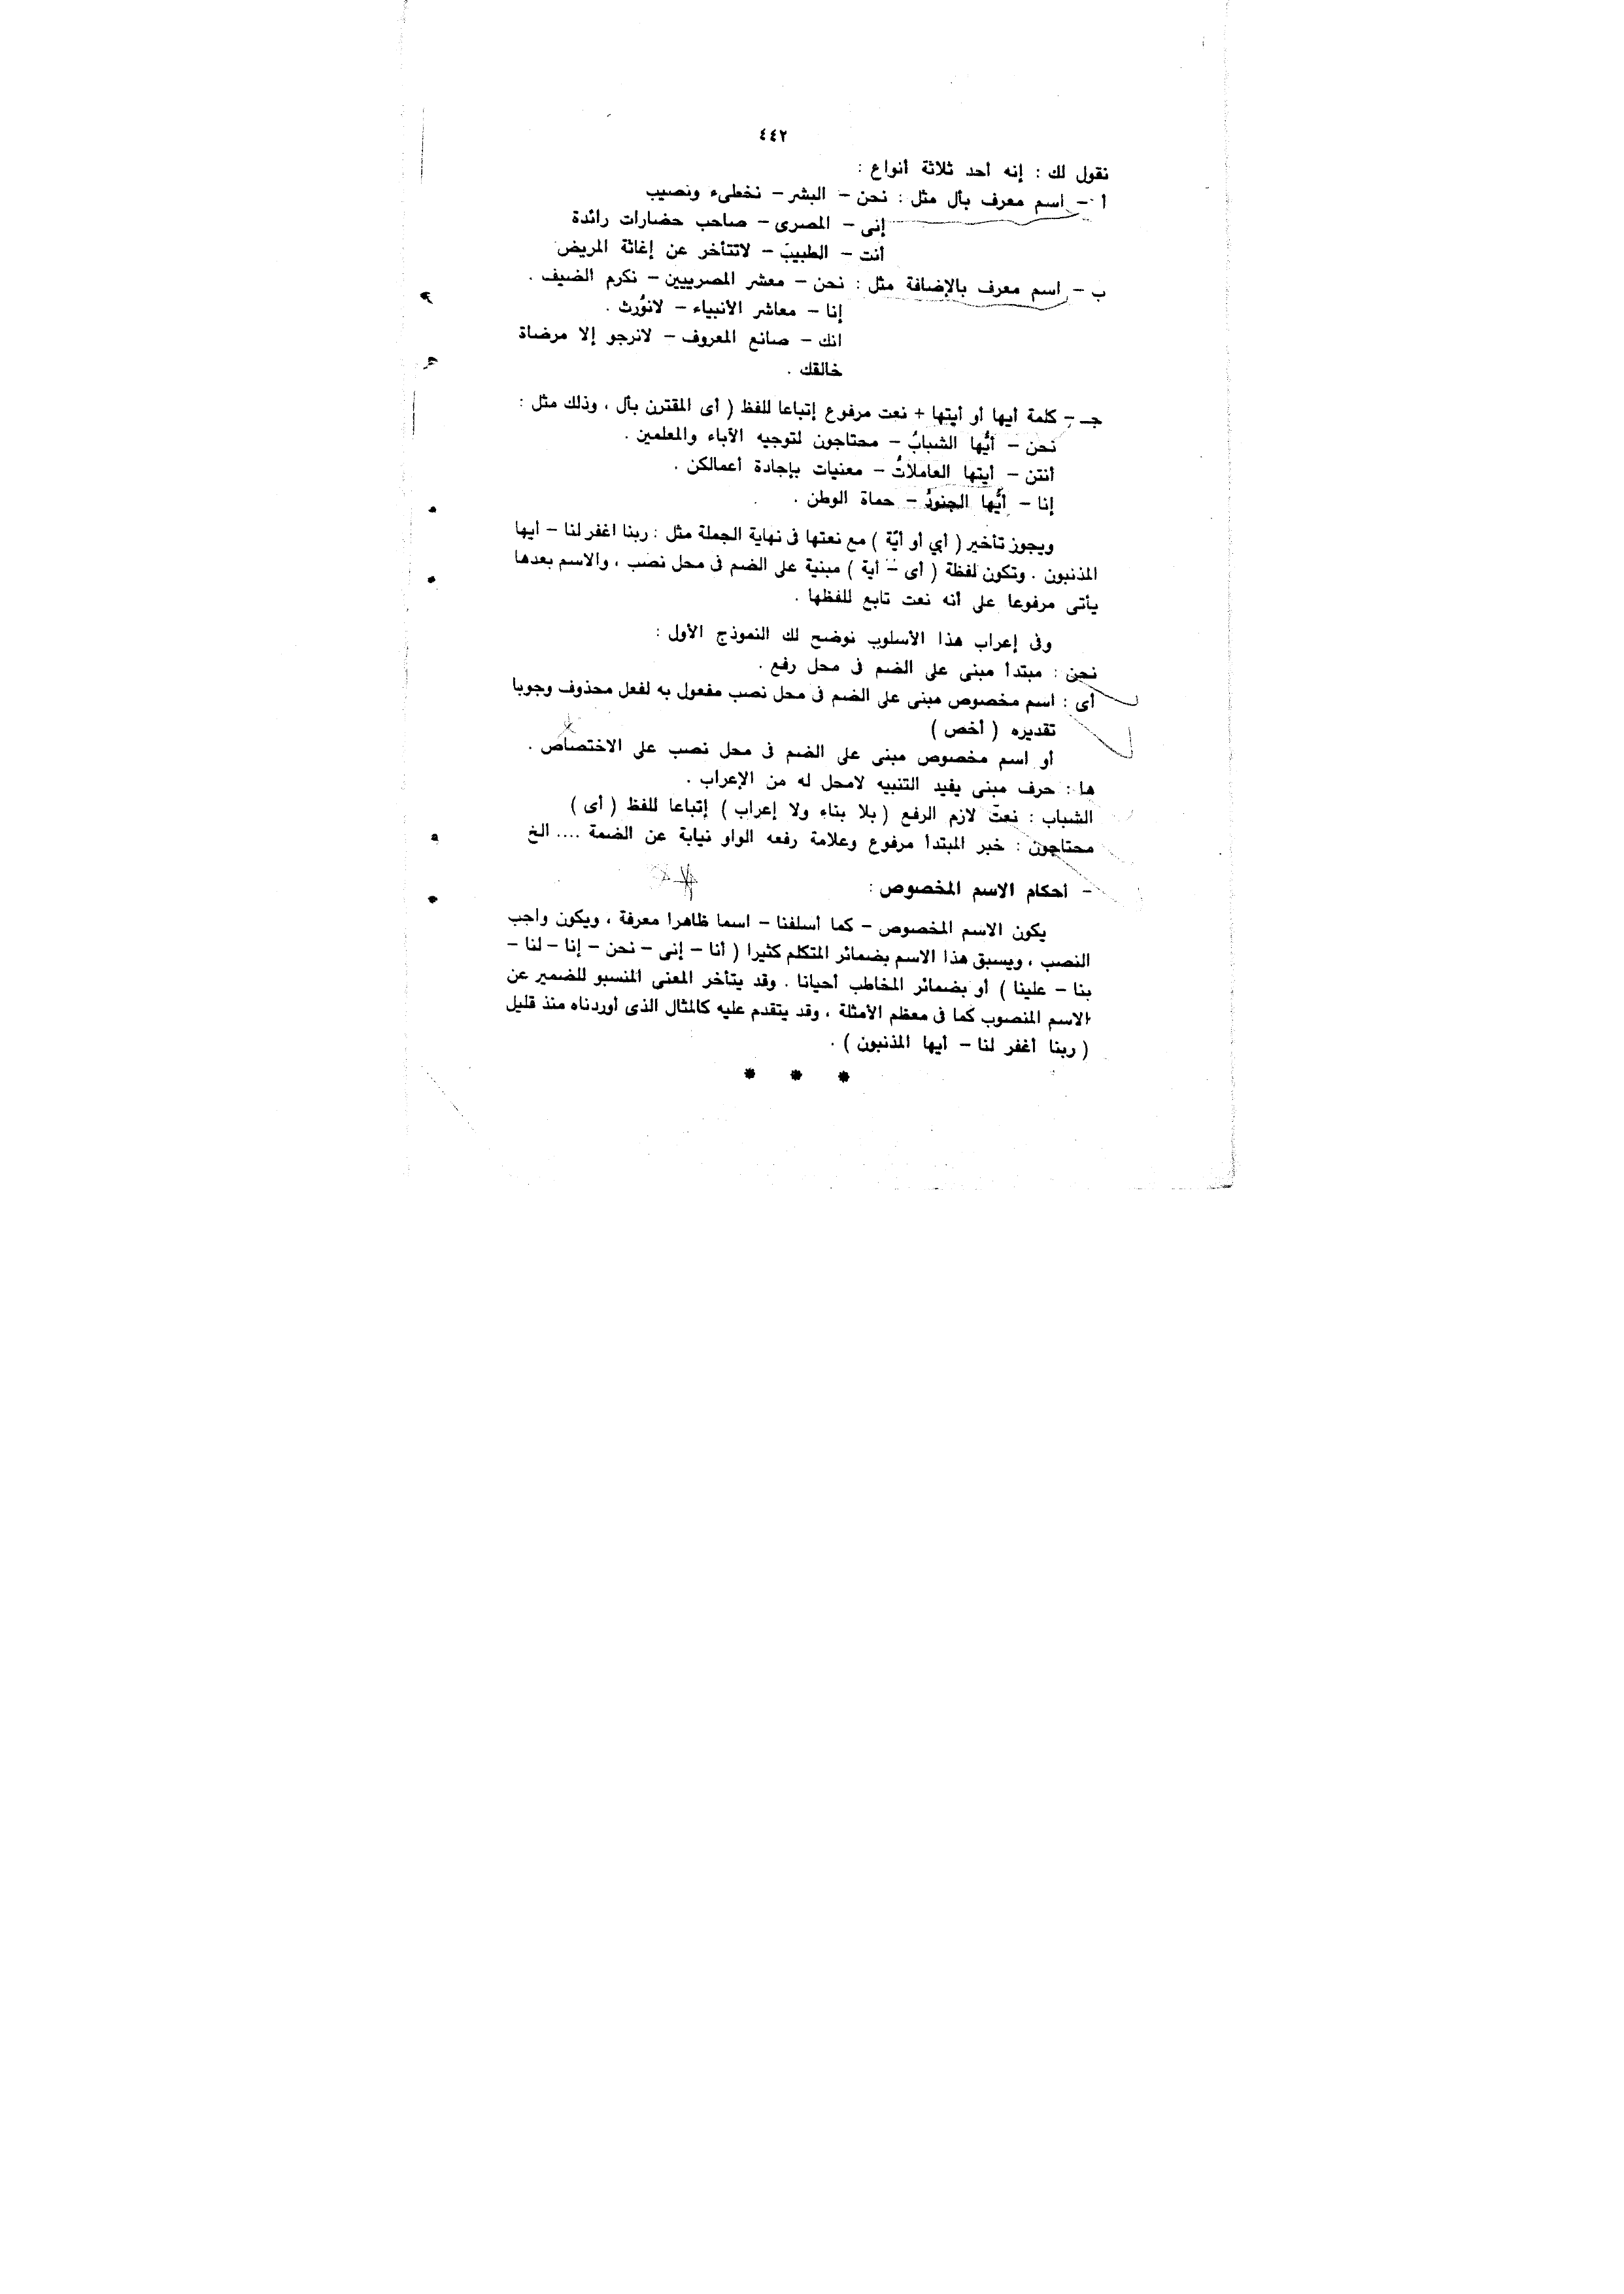 ٤٤٢
نقول لك : إنه أحد ثلاثة أنواع :
أ - اسم معرف بأل مثل : نحن - البشر - نخطىء ونصيب
إنى - المصرى - صاحب حضارات رائدة
أنت - الطبيبَ - لاتتأخر عن إغاثة المريض
ب - اسم معرف بالإضافة مثل : نحن - معشر المصريين - نكرم الضيف .
إنا - معاشر الأنبياء - لانوُرث .
انك - صانع المعروف - لانرجو إلا مرضاة
خالقك .
جـ - كلمة أيها أو أيتها + نعت مرفوع إتباعا للفظ ( أى المقترن بأل ، وذلك مثل :
نحن - أيُّها الشبابُ - محتاجون لتوجيه الآباء والمعلمين .
أنتن - أيتها العاملاتُ - معنيات بإجادة أعمالكن .
إنا - أيُّها الجنودُ - حماة الوطن .
ويجوز تأخير ( أي أو أيّة ) مع نعتها فى نهاية الجملة مثل : ربنا اغفر لنا - أيها
المذنبون . وتكون لفظة ( أى - أية ) مبنية على الضم فى محل نصب ، والاسم بعدها
يأتى مرفوعا على أنه نعت تابع للفظها .
وفى إعراب هذا الأسلوب نوضح لك النموذج الأول :
نحن : مبتدأ مبنى على الضم فى محل رفع .
أى : اسم مخصوص مبنى على الضم فى محل نصب مفعول به لفعل محذوف وجوبا
تقديره ( أخص )
أو اسم مخصوص مبنى على الضم فى محل نصب على الاختصاص .
ها : حرف مبنى يفيد التنبيه لامحل له من الإعراب .
الشباب : نعت لازم الرفع ( بلا بناء ولا إعراب ) إتباعا للفظ ( أى )
محتاجون : خبر المبتدأ مرفوع وعلامة رفعه الواو نيابة عن الضمة .... الخ
- أحكام الاسم المخصوص :
يكون الاسم المخصوص - كما أسلفنا - اسما ظاهرا معرفة ، ويكون واجب
النصب ، ويسبق هذا الاسم بضمائر المتكلم كثيرا ( أنا - إنى - نحن - إنا - لنا -
بنا - علينا ) أو بضمائر المخاطب أحيانا . وقد يتأخر المعنى المنسبو للضمير عن
الاسم المنصوب كما فى معظم الأمثلة ، وقد يتقدم عليه كالمثال الذى أوردناه منذ قليل
( ربنا أغفر لنا - أيها المذنبون ) .
* * *